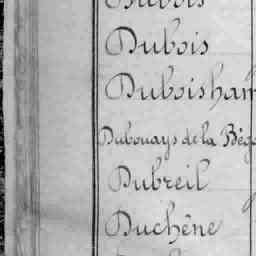 Dubois
Dubois
Duboisham
Dubouays de la Bég
Dubreil
Duchêne